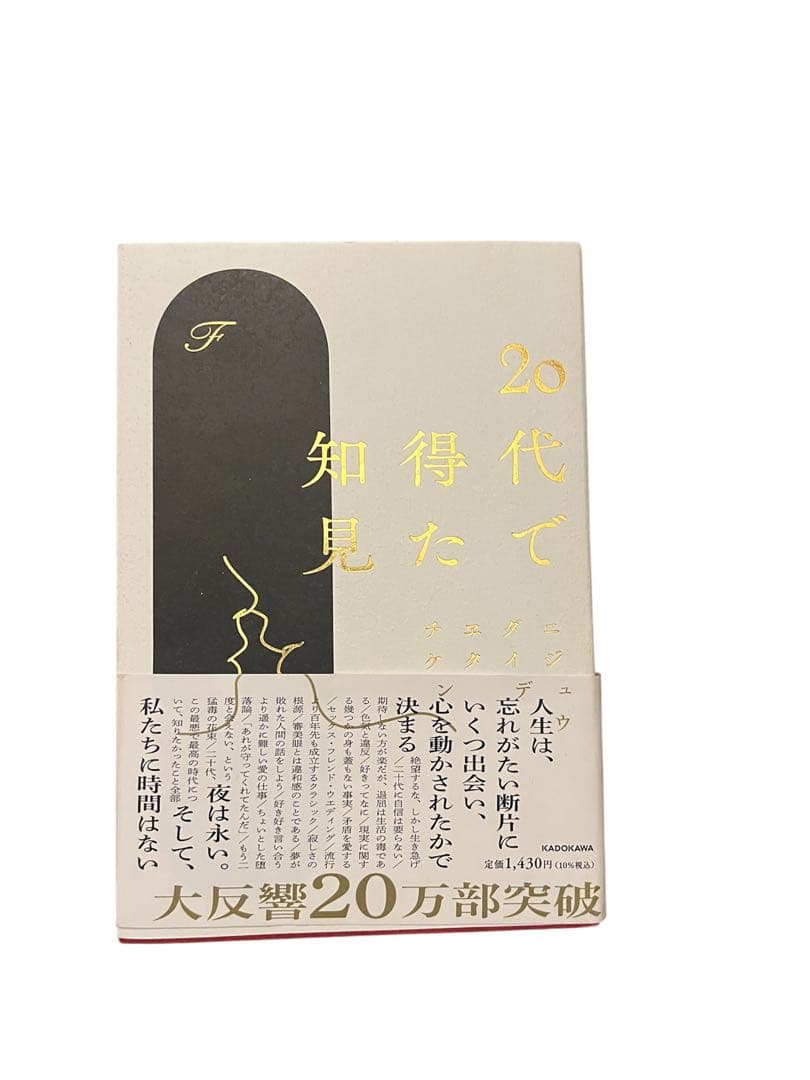 F
20
代で
得た
知見
ニジュウ
ダイデ
エタ
チケン
人生は、
忘れがたい断片に
いくつ出会い、
心を動かされたかで
決まる
絶望するな、しかし生き急げ
/二十代に自信は要らない/
期待しない方が楽だが、退屈は生活の毒であ
る/色気と違反/好きってなに/現実に関す
る幾つかの身も蓋もない事実/矛盾を愛する
/セックス・フレンド・ウエディング/流行
より百年先も成立するクラシック/寂しさの
根源/審美眼とは違和感のことである/夢が
敗れた人間の話をしよう/好き好き言い合う
より遥かに難しい愛の仕事/ちょいとした堕
落論/「あれが守ってくれてたんだ」/もう二
度と会えない、という
猛毒の花束/二十代、
夜は永い。
この最悪で最高の時代につ
いて、知りたかったこと全部
そして、
私たちに時間はない
KADOKAWA
定価1,430円(10%税込)
大反響20万部突破